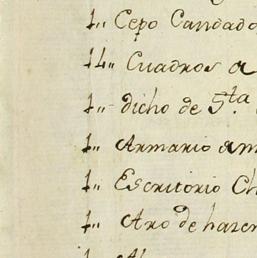 1,, Cepo Candado
14,, Cuadros a
1,, dicho de 5.ta
1,, Armario am
1,, Escritorio Ch
1,, Aro de hacer
1,,